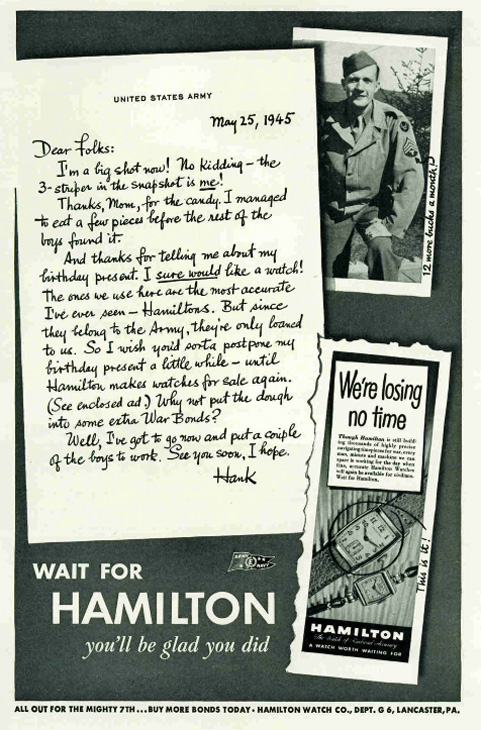 UNITED STATES ARMY
May 25, 1945
Dear Folks:
I'm a big shot now! No kidding – the
3-striper in the snapshot is me!
Thanks, Mom, for the candy. I managed
to eat a few pieces before the rest of the
boys found it.
And thanks for telling me about my
birthday present. I sure would like a watch!
The ones we use here are the most accurate
I've ever seen – Hamiltons. But since
they belong to the Army, they're only loaned
to us. So I wish you'd sorta postpone my
birthday present a little while – until
Hamilton makes watches for sale again.
(See enclosed ad.) Why not put the dough
into some extra War Bonds?
Well, I've got to go now and put a couple
of the boys to work. See you soon, I hope.
Hank
12 more bucks a month!
We're losing
no time
Though Hamilton is still build-
ing thousands of highly precise
navigating timepieces for war, every
man, minute and machine we can
spare is working for the day when
fine, accurate Hamilton Watches
will again be available for civilians.
Wait for Hamilton.
This is it!
HAMILTON
The Watch of Railroad Accuracy
A WATCH WORTH WAITING FOR
ARMY
NAVY
WAIT FOR
HAMILTON
you'll be glad you did
ALL OUT FOR THE MIGHTY 7TH...BUY MORE BONDS TODAY • HAMILTON WATCH CO., DEPT. G 6, LANCASTER, PA.